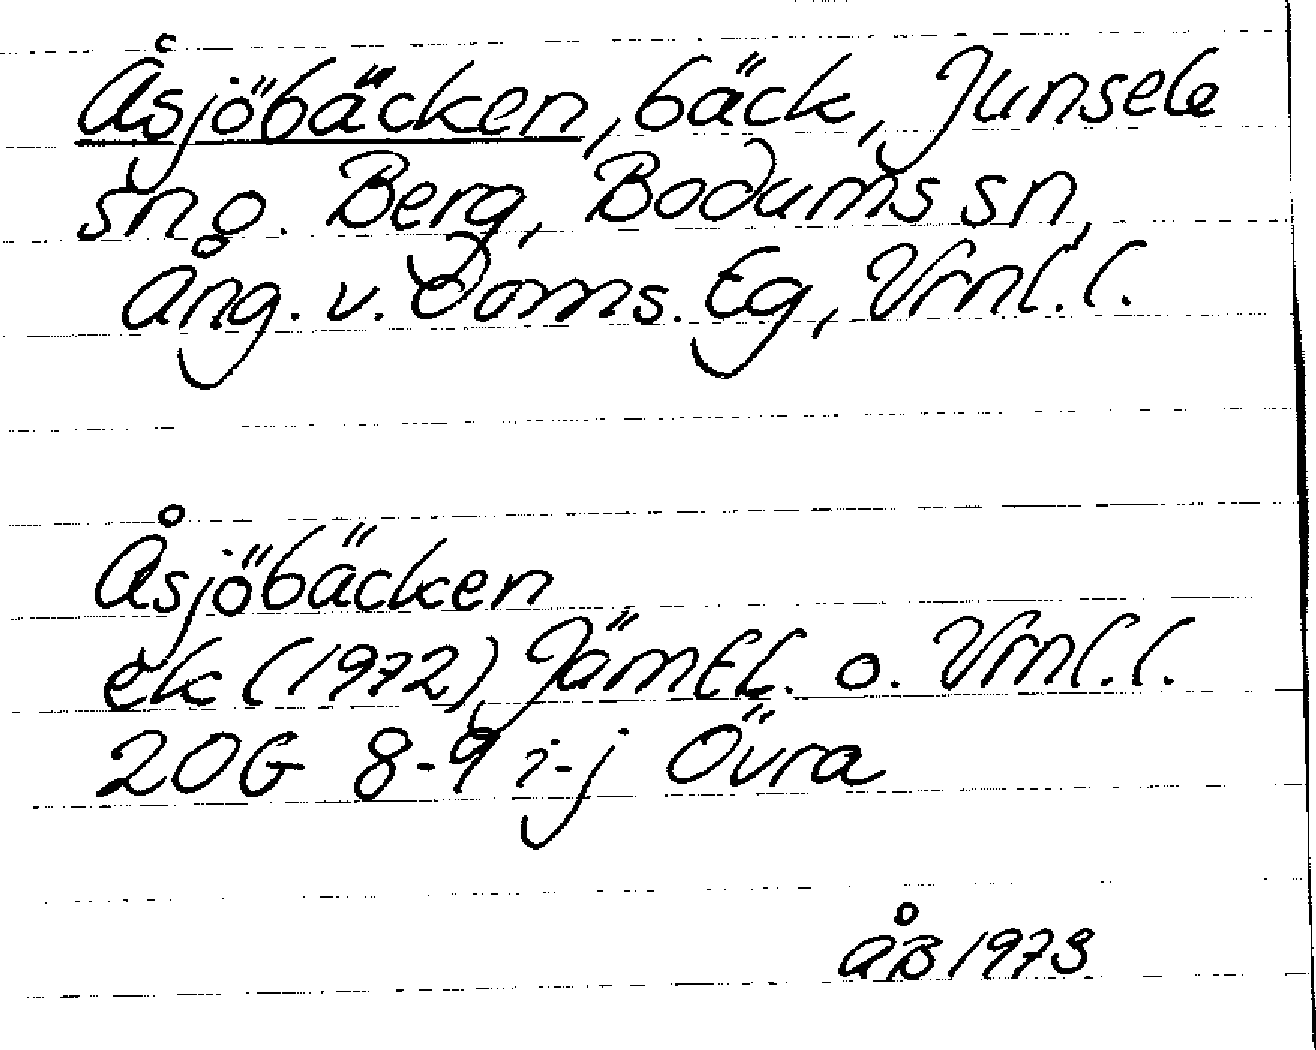 Åsjöbäcken, bäck, Junsele
sn o. Berg, Bodums sn,
Ång. v. Doms. Eg, Vrnl. l.
Åsjöbäcken
ek (1972) Jämtl. o. Vrnl. l.
20G 8-9 i-j Övra
ÅB 1973